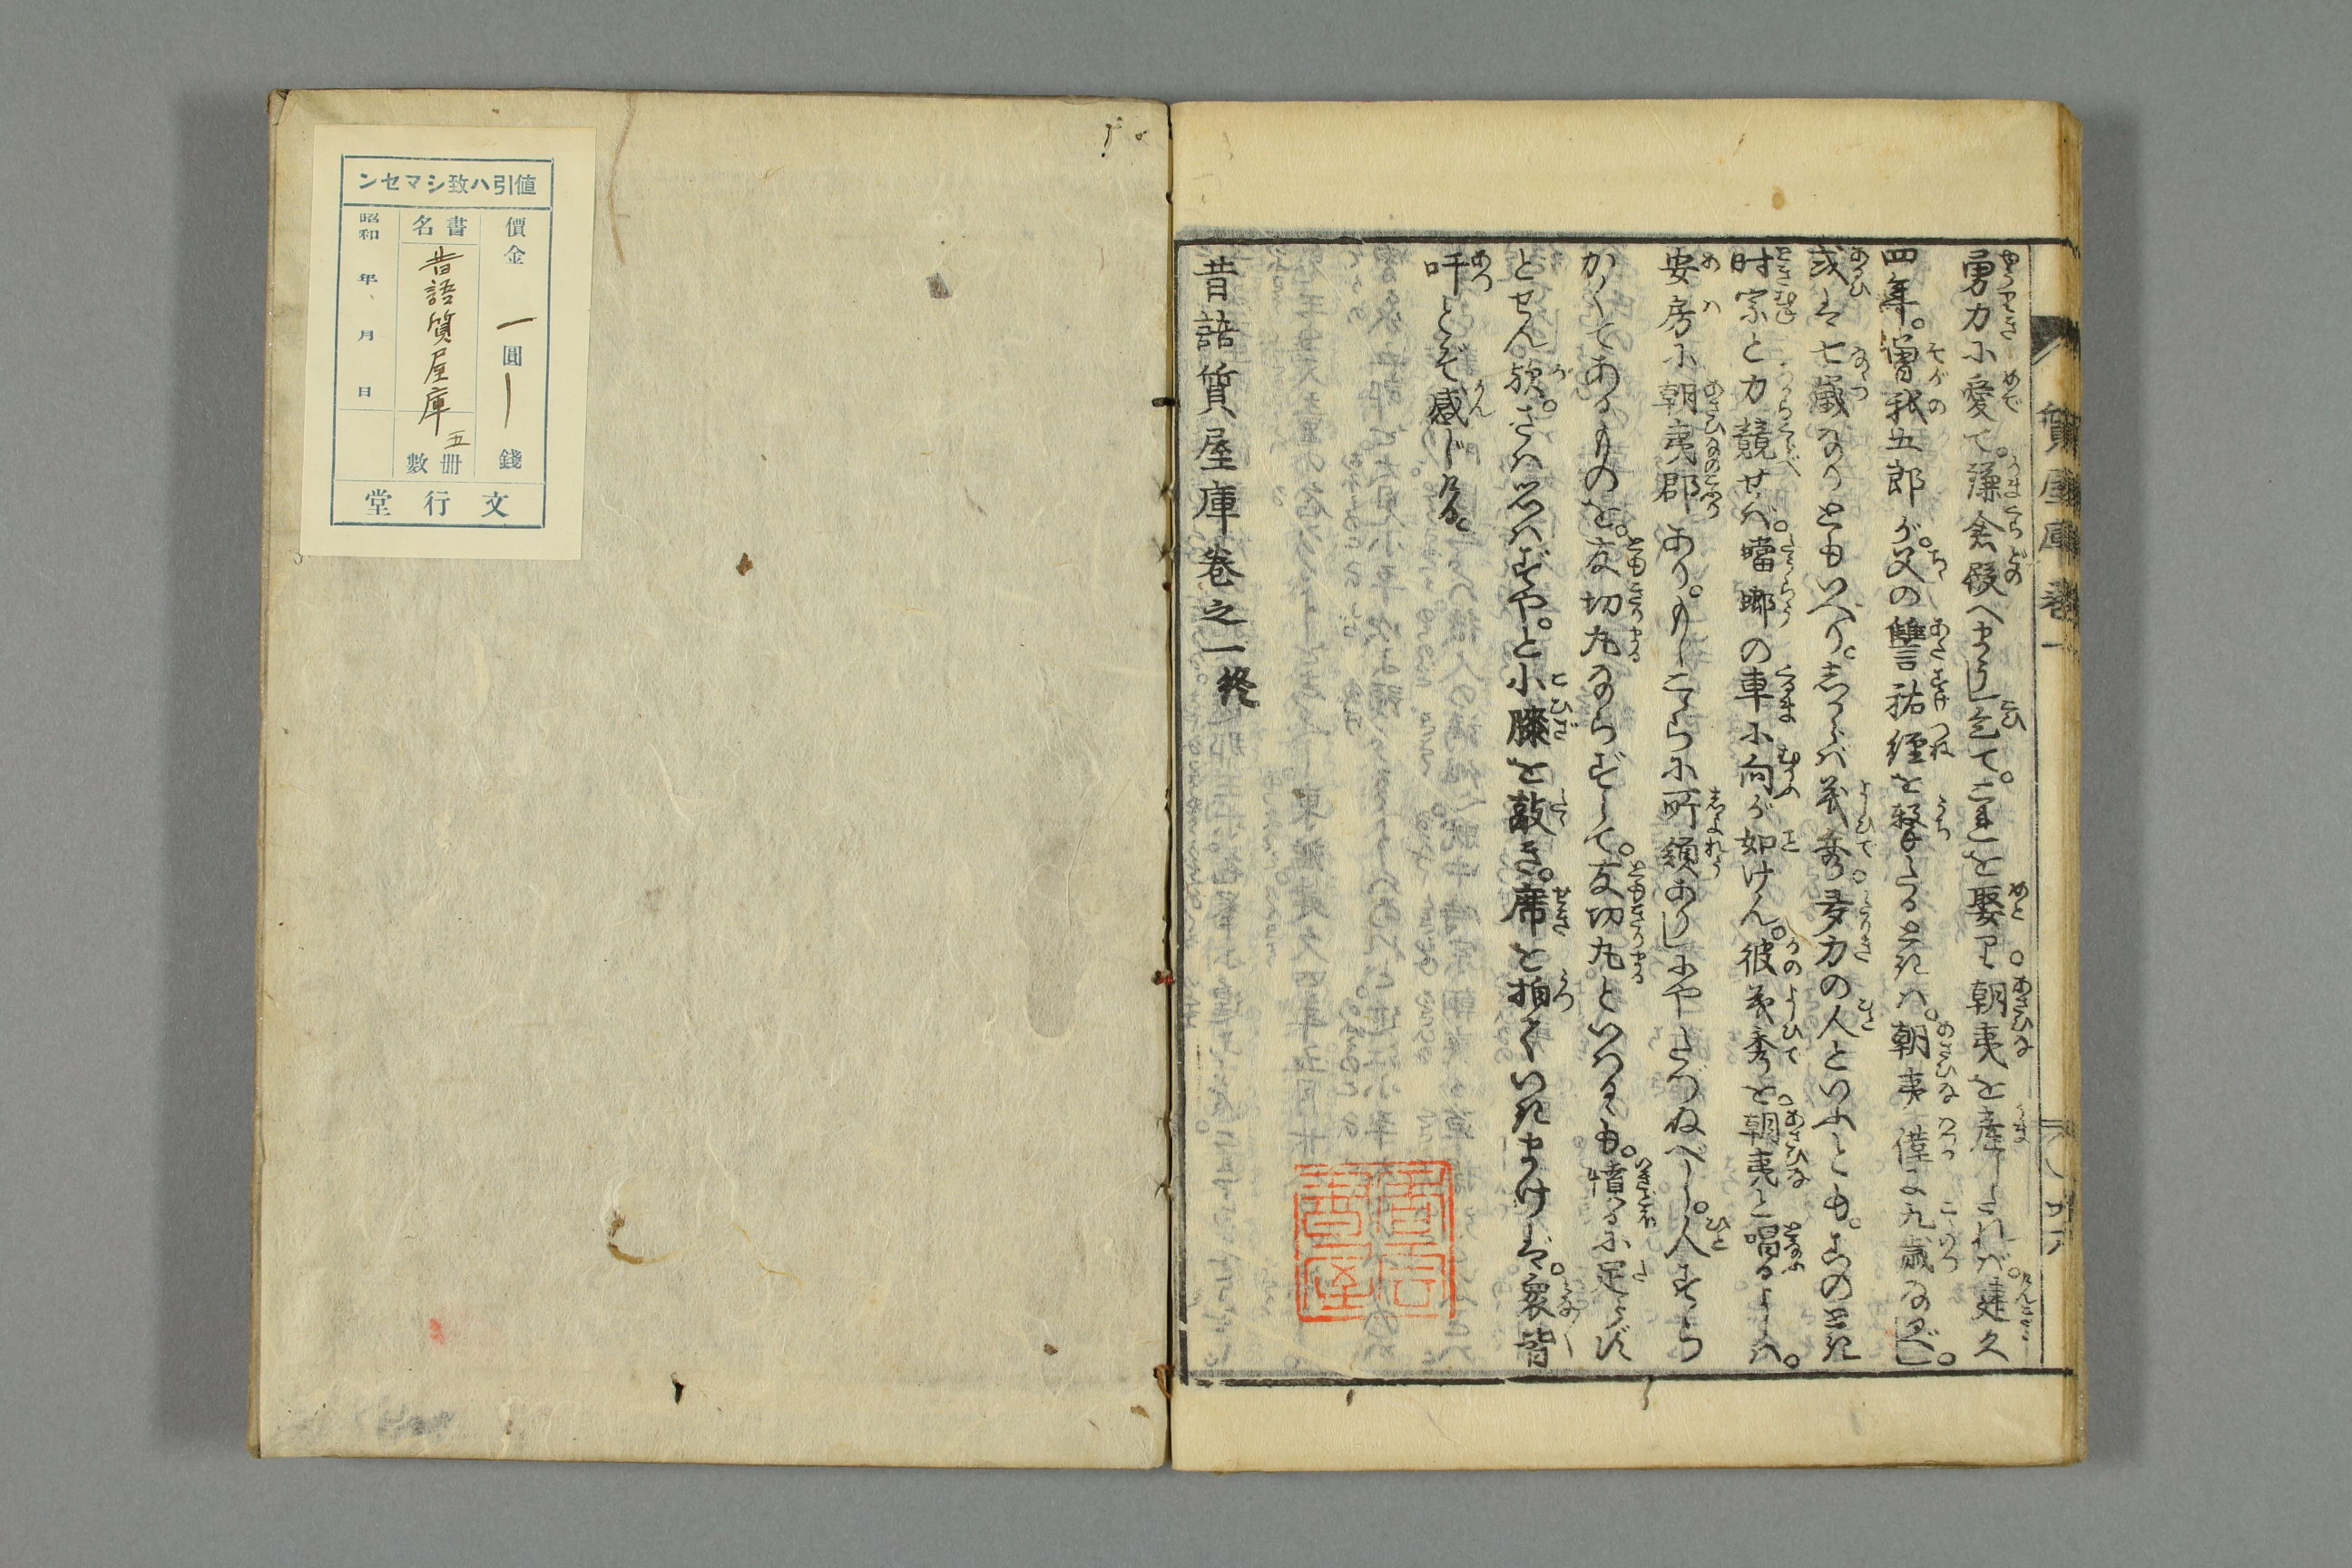 質屋庫巻一
勇力に愛て。鎌倉殿へまうし乞て。これを娶り。朝夷を産したれば。建久
四年。曽我五郎が。父の讐祐経を撃たるときは。朝夷僅に九歳なるべし。
或は七歳なりともいへり。しからば義秀多力の人といふとも。このとき
時宗と力競せば。蟷螂の車に向が如けん。彼義秀を。朝夷と唱るよしは。
安房に朝夷郡あり。もしこゝらに所領ありしにやたづぬべし。人すらう
かくてあるものを。友切丸ならずして。友切丸といはるゝも。憤るに足らず
とせん歟。さは思はずや。と小膝を敲き。席を拍ていきまけば。衆皆
吀とぞ感じける。
昔語質屋庫巻之一終
値引ハ致シマセン
價金 一圓 錢
書名 昔語質屋庫
冊數 五
昭和 年 月 日
文行堂